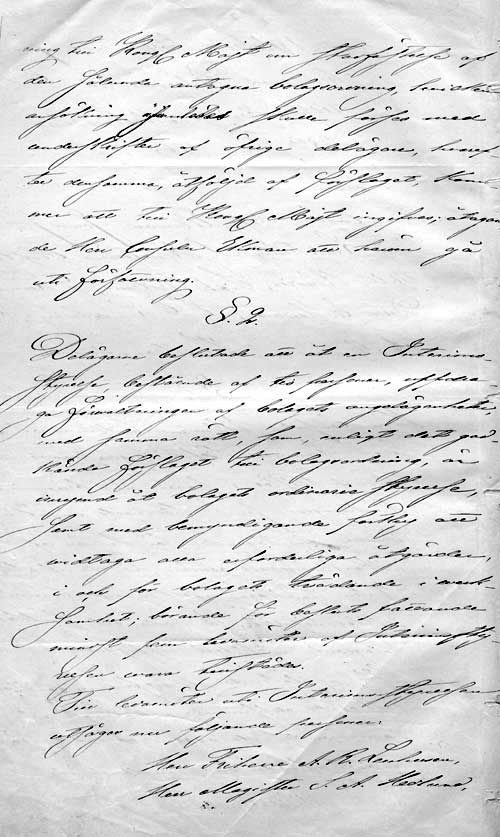 ning till Kongl Majt om stadfästelse af
den sålunda antagna bolagsordning, hvilken
ansökning skulle förses med
underskrifter af öfrige delägare, hvaref
ter densamma, åtföljd af förslaget, kom-
mer att till Kongl Majt ingifves; åtagan
de Herr Consuln Ekman att härom gå
uti författning.
§. 2.
Delägarne beslutade att åt en Interims-
styrelse, bestående af tio personer, uppdra-
ga förvaltningen af bolagets angelägenheter,
med samma rätt, som, enligt det god-
kända förslaget till bolagsordning, är
inrymd åt bolagets ordinarie styrelse,
samt med bemyndigande för att
widtaga alla erforderliga åtgärder,
i och för bolagets trädande i verk-
samhet; börande för besluts fattande
minst fem ledamöter af Interimssty-
relsen vara tillstädes.
Till ledamöter uti Interimsstyrelsen
utsågos nu följande personer:
Herr Friherre A. R.
Herr Magister S. A. Hedlund,